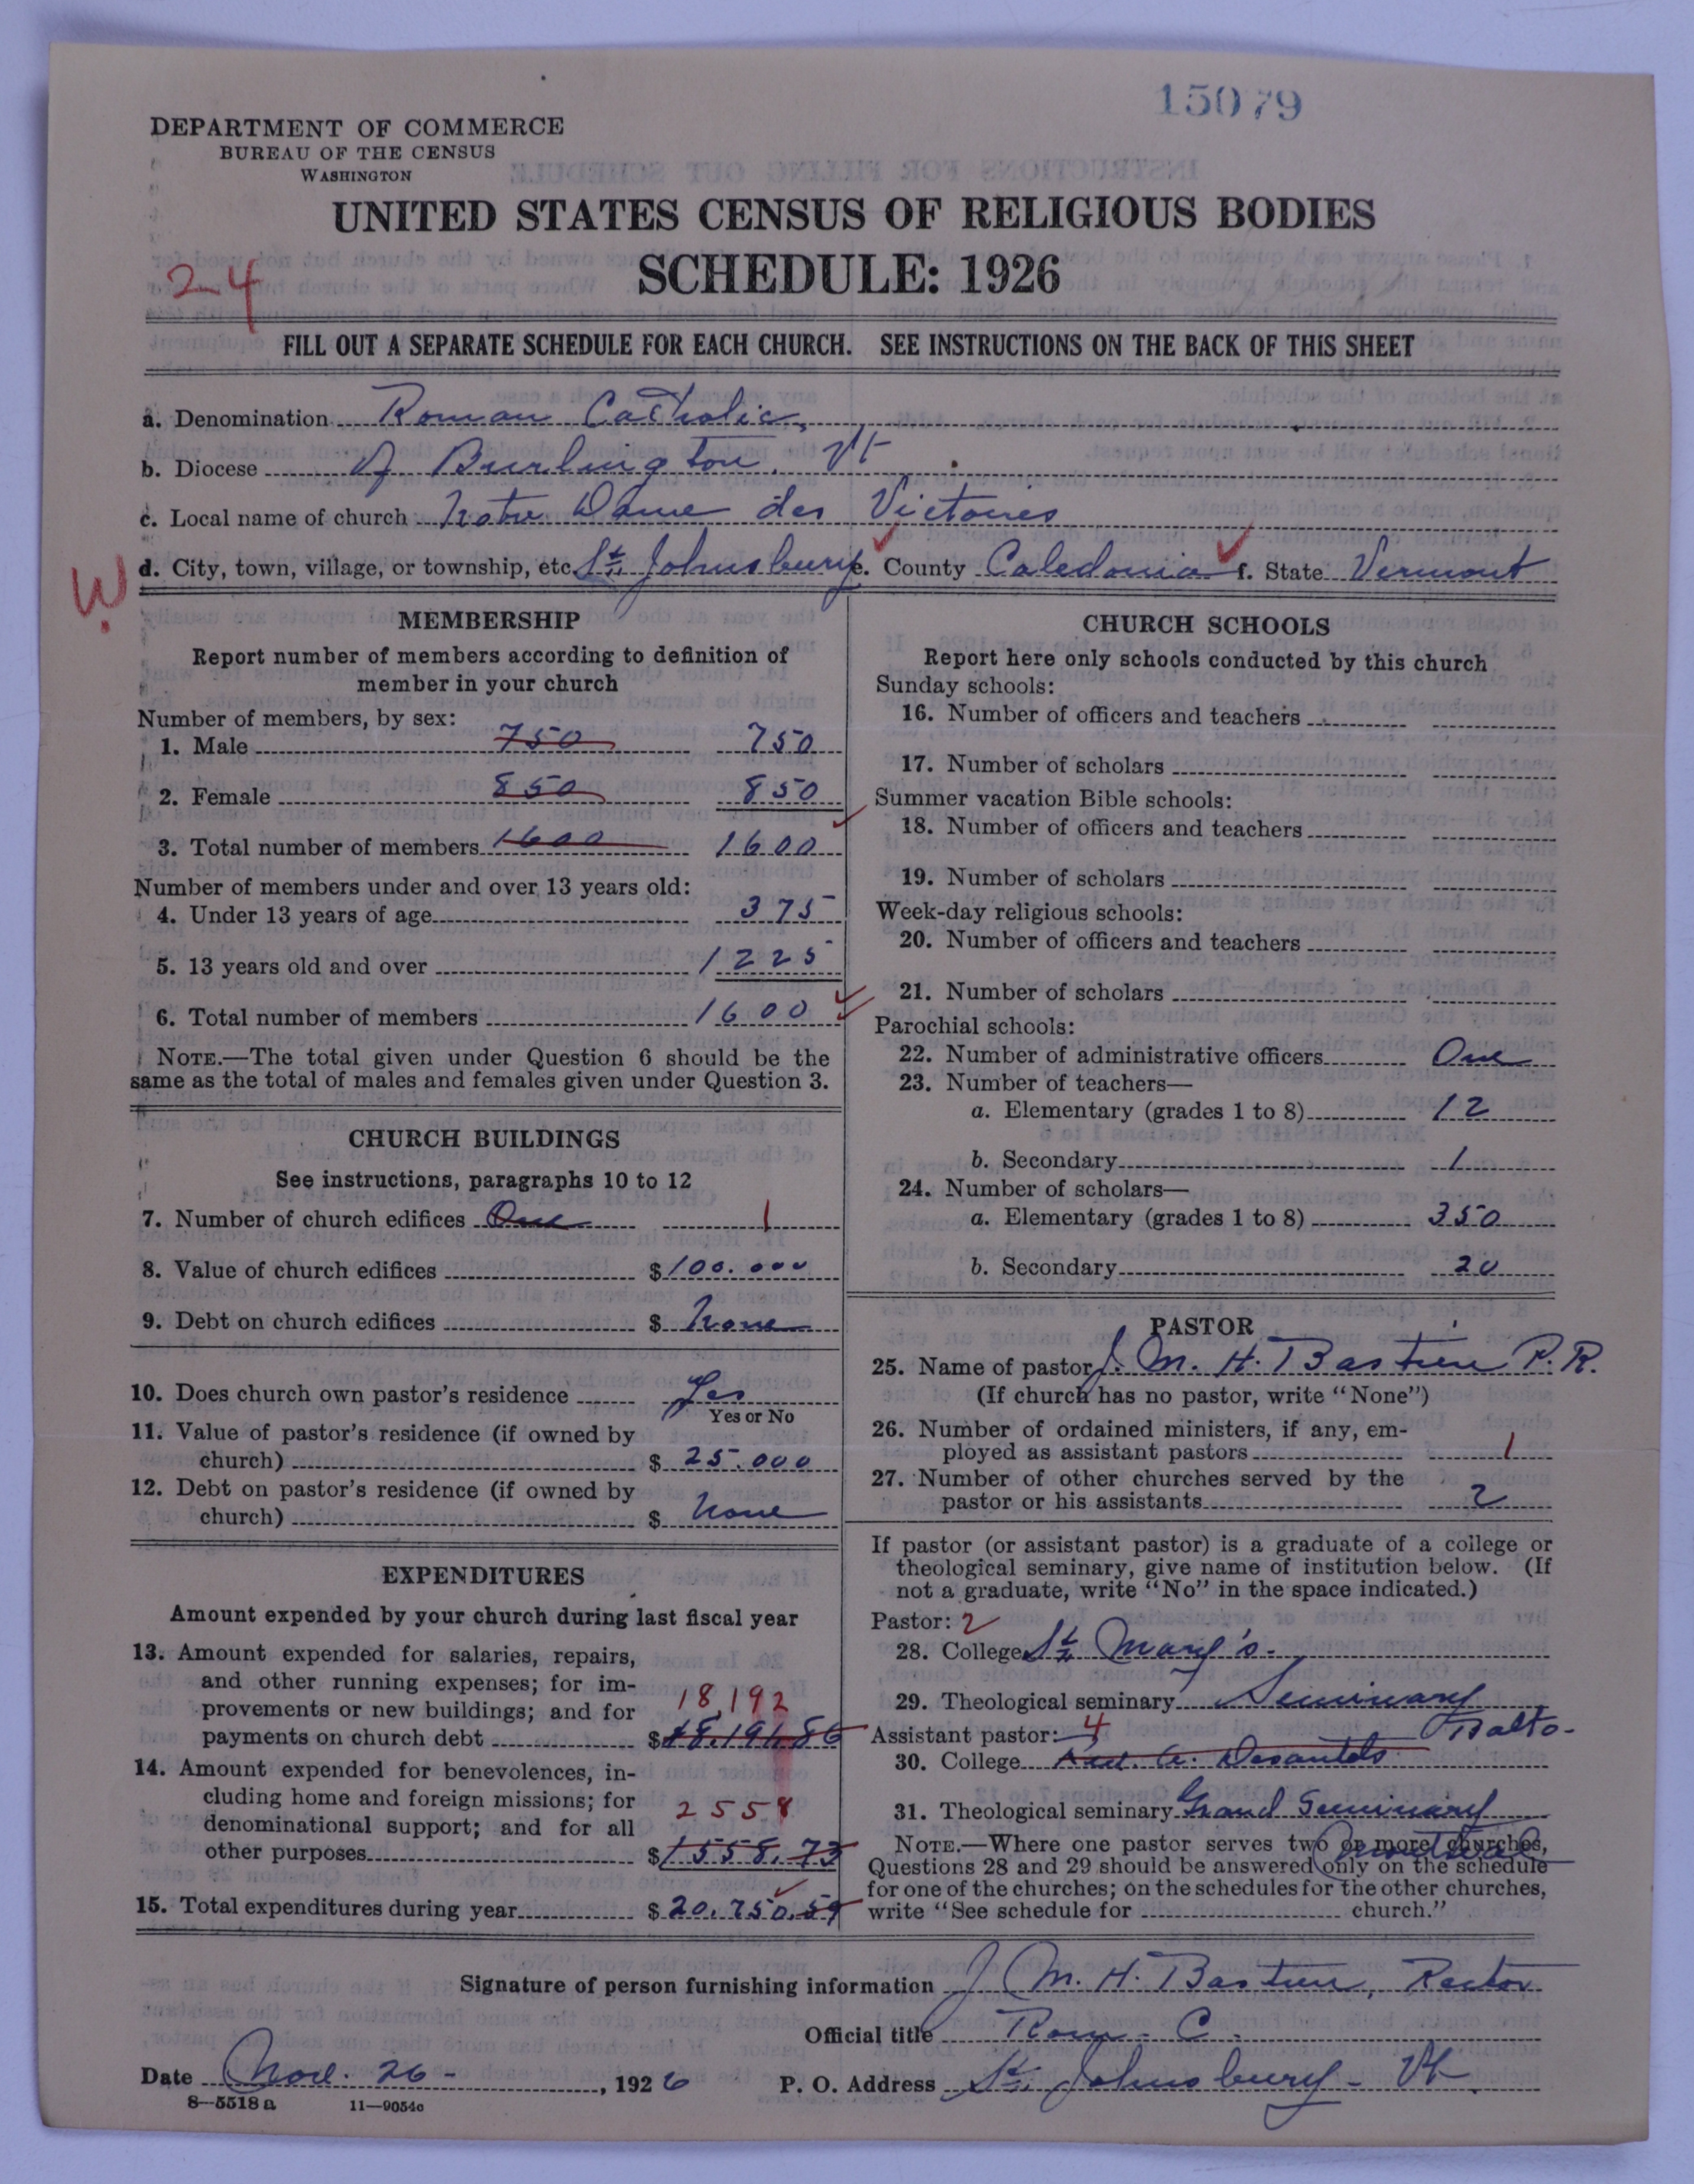 15079
DEPARTMENT OF COMMERCE
BUREAU OF THE CENSUS
WASHINGTON
UNITED STATES CENSUS OF RELIGIOUS BODIES
SCHEDULE: 1926
24
FILL OUT A SEPARATE SCHEDULE FOR EACH CHURCH. SEE INSTRUCTIONS ON THE BACK OF THIS SHEET
a. Denomination Roman Catholic,
b. Diocese of Burlington. Vt
c. Local name of church Notre Dame des Victoires
W d. City, town, village, or township, etc. St. Johnsbury e. County Caledonia f. State Vermont
MEMBERSHIP
Report number of members according to definition of
member in your church
Number of members, by sex:
1. Male 750 750
2. Female 850 850
3. Total number of members 1600 1600
Number of members under and over 13 years old:
4. Under 13 years of age 375
5. 13 years old and over 1225
6. Total number of members 1600
NOTE.—The total given under Question 6 should be the
same as the total of males and females given under Question 3.
CHURCH BUILDINGS
See instructions, paragraphs 10 to 12
7. Number of church edifices One 1
8. Value of church edifices $100.000
9. Debt on church edifices $ None
10. Does church own pastor's residence Yes
Yes or No
11. Value of pastor's residence (if owned by
church) $ 25.000
12. Debt on pastor's residence (if owned by
church) $ None
EXPENDITURES
Amount expended by your church during last fiscal year
13. Amount expended for salaries, repairs,
and other running expenses; for im-
provements or new buildings; and for 18,192
payments on church debt $18.191.86
14. Amount expended for benevolences, in-
cluding home and foreign missions; for 2558
denominational support; and for all
other purposes $1558.73
15. Total expenditures during year $20.750.59
CHURCH SCHOOLS
Report here only schools conducted by this church
Sunday schools:
16. Number of officers and teachers
17. Number of scholars
Summer vacation Bible schools:
18. Number of officers and teachers
19. Number of scholars
Week-day religious schools:
20. Number of officers and teachers
21. Number of scholars
Parochial schools:
22. Number of administrative officers One
23. Number of teachers—
a. Elementary (grades 1 to 8) 12
b. Secondary 1
24. Number of scholars—
a. Elementary (grades 1 to 8) 350
b. Secondary 20
PASTOR
25. Name of pastor J. M. H. Bastien P.R.
(If church has no pastor, write "None")
26. Number of ordained ministers, if any, em-
ployed as assistant pastors 1
27. Number of other churches served by the
pastor or his assistants 2
If pastor (or assistant pastor) is a graduate of a college or
theological seminary, give name of institution below. (If
not a graduate, write "No" in the space indicated.)
Pastor: 2
28. College St. Mary's
29. Theological seminary Seminary
Assistant pastor: 4 Balto-
30. College A. Desautels
31. Theological seminary Grand Seminary
Montreal
NOTE.—Where one pastor serves two or more churches,
Questions 28 and 29 should be answered only on the schedule
for one of the churches; on the schedules for the other churches,
write "See schedule for church."
Signature of person furnishing information J M. H. Bastien, Rector
Official title Rom. C.
Date Nov. 26 - , 1926 P. O. Address St. Johnsbury - Vt
8—5518a 11—9054c